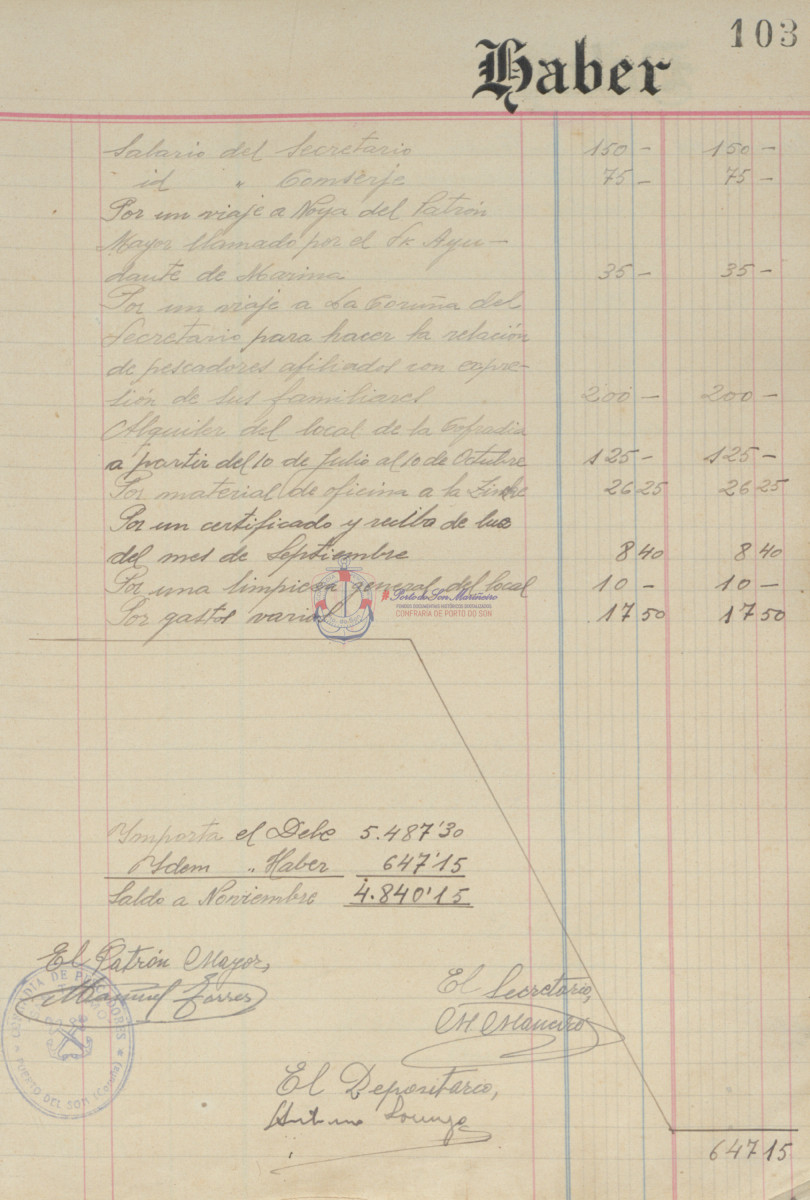 103
Haber
Salario del Secretario 150 - 150 -
id " Conserje 75 - 75 -
Por un viaje a Noya del Patrón
Mayor llamado por el Sr. Ayu-
dante de Marina 35 - 35 -
Por un viaje a La Coruña del
Secretario para hacer la relación
de pescadores afiliados con expre-
sión de sus familiares 200 - 200 -
Alquiler del local de la Cofradia
a partir del 10 de Julio al 10 de Octubre 125 - 125 -
Por material de oficina a la 26 25 26 25
Por un certificado y recibo de luz
del mes de Septiembre 8 40 8 40
Por una limpieza general del local 10 - 10 -
Por gastos varios 17 50 17 50
Porto do Son Mariñeiro
FONDOS DOCUMENTAIS HISTÓRICOS DIXITALIZADOS
CONFRARÍA DE PORTO DO SON
Importa el Debe 5.487'30
Idem " Haber 647'15
Saldo a Noviembre 4.840'15
El Patrón Mayor,
Manuel Torres
COFRADIA DE PESCADORES
PUERTO DEL SON (Coruña)
El Secretario,
M Maneiro
El Depositario,
Arturo Lourenzo
647 15